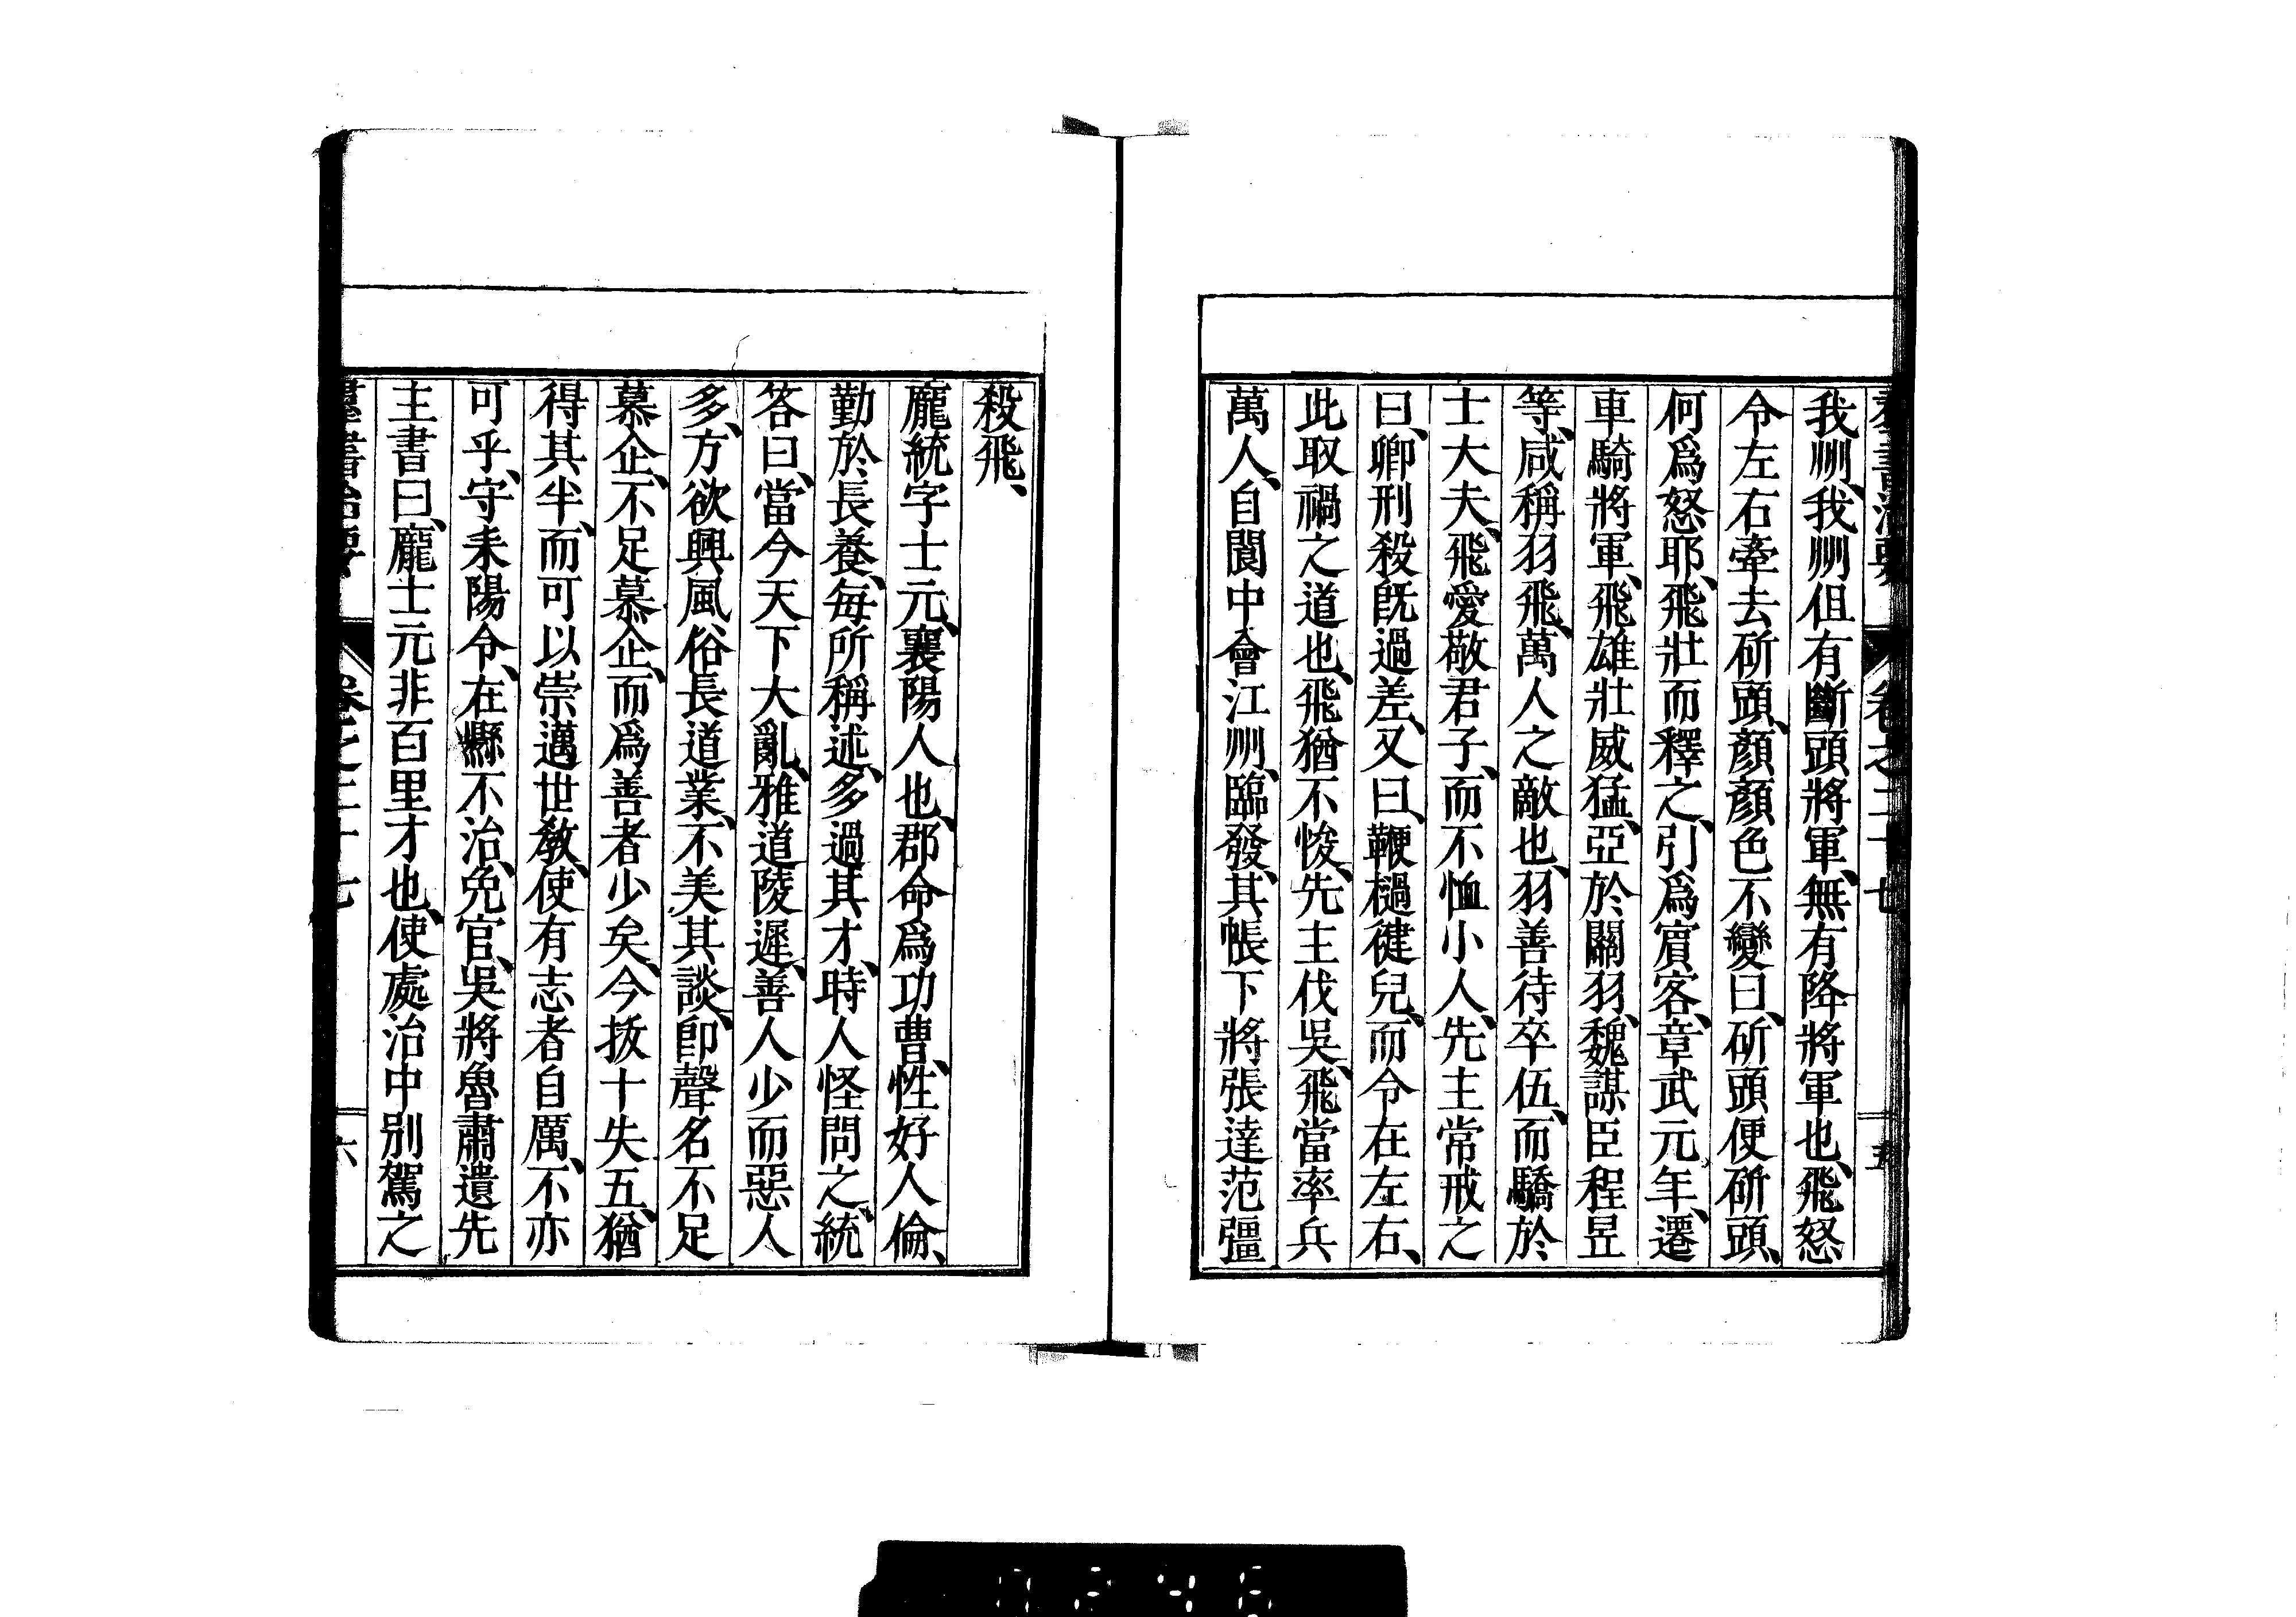 群書治要 卷之二十七 五
我州、我州但有斷頭將軍、無有降將軍也、飛怒
令左右牽去斫頭、顏顏色不變曰、斫頭便斫頭、
何爲怒耶、飛壯而釋之、引爲賓客、章武元年、遷
車騎將軍、飛雄壯威猛、亞於關羽、魏謀臣程昱
等、咸稱羽飛、萬人之敵也、羽善待卒伍、而驕於
士大夫、飛愛敬君子、而不恤小人、先主常戒之
曰、卿刑殺旣過差、又曰、鞭檛健兒、而令在左右、
此取禍之道也、飛猶不悛、先主伐吳、飛當率兵
萬人、自閬中會江州、臨發、其帳下將張達范彊
殺飛、
龐統字士元、襄陽人也、郡命爲功曹、性好人倫、
勤於長養、每所稱述、多過其才、時人怪問之、統
答曰、當今天下大亂、雅道陵遲、善人少而惡人
多、方欲興風俗長道業、不美其談、卽聲名不足
慕企、不足慕企、而爲善者少矣、今拔十失五、猶
得其半、而可以崇邁世教、使有志者自厲、不亦
可乎、守耒陽令、在縣不治、免官、吳將魯肅遺先
主書曰、龐士元非百里才也、使處治中別駕之
群書治要 卷之二十七 六